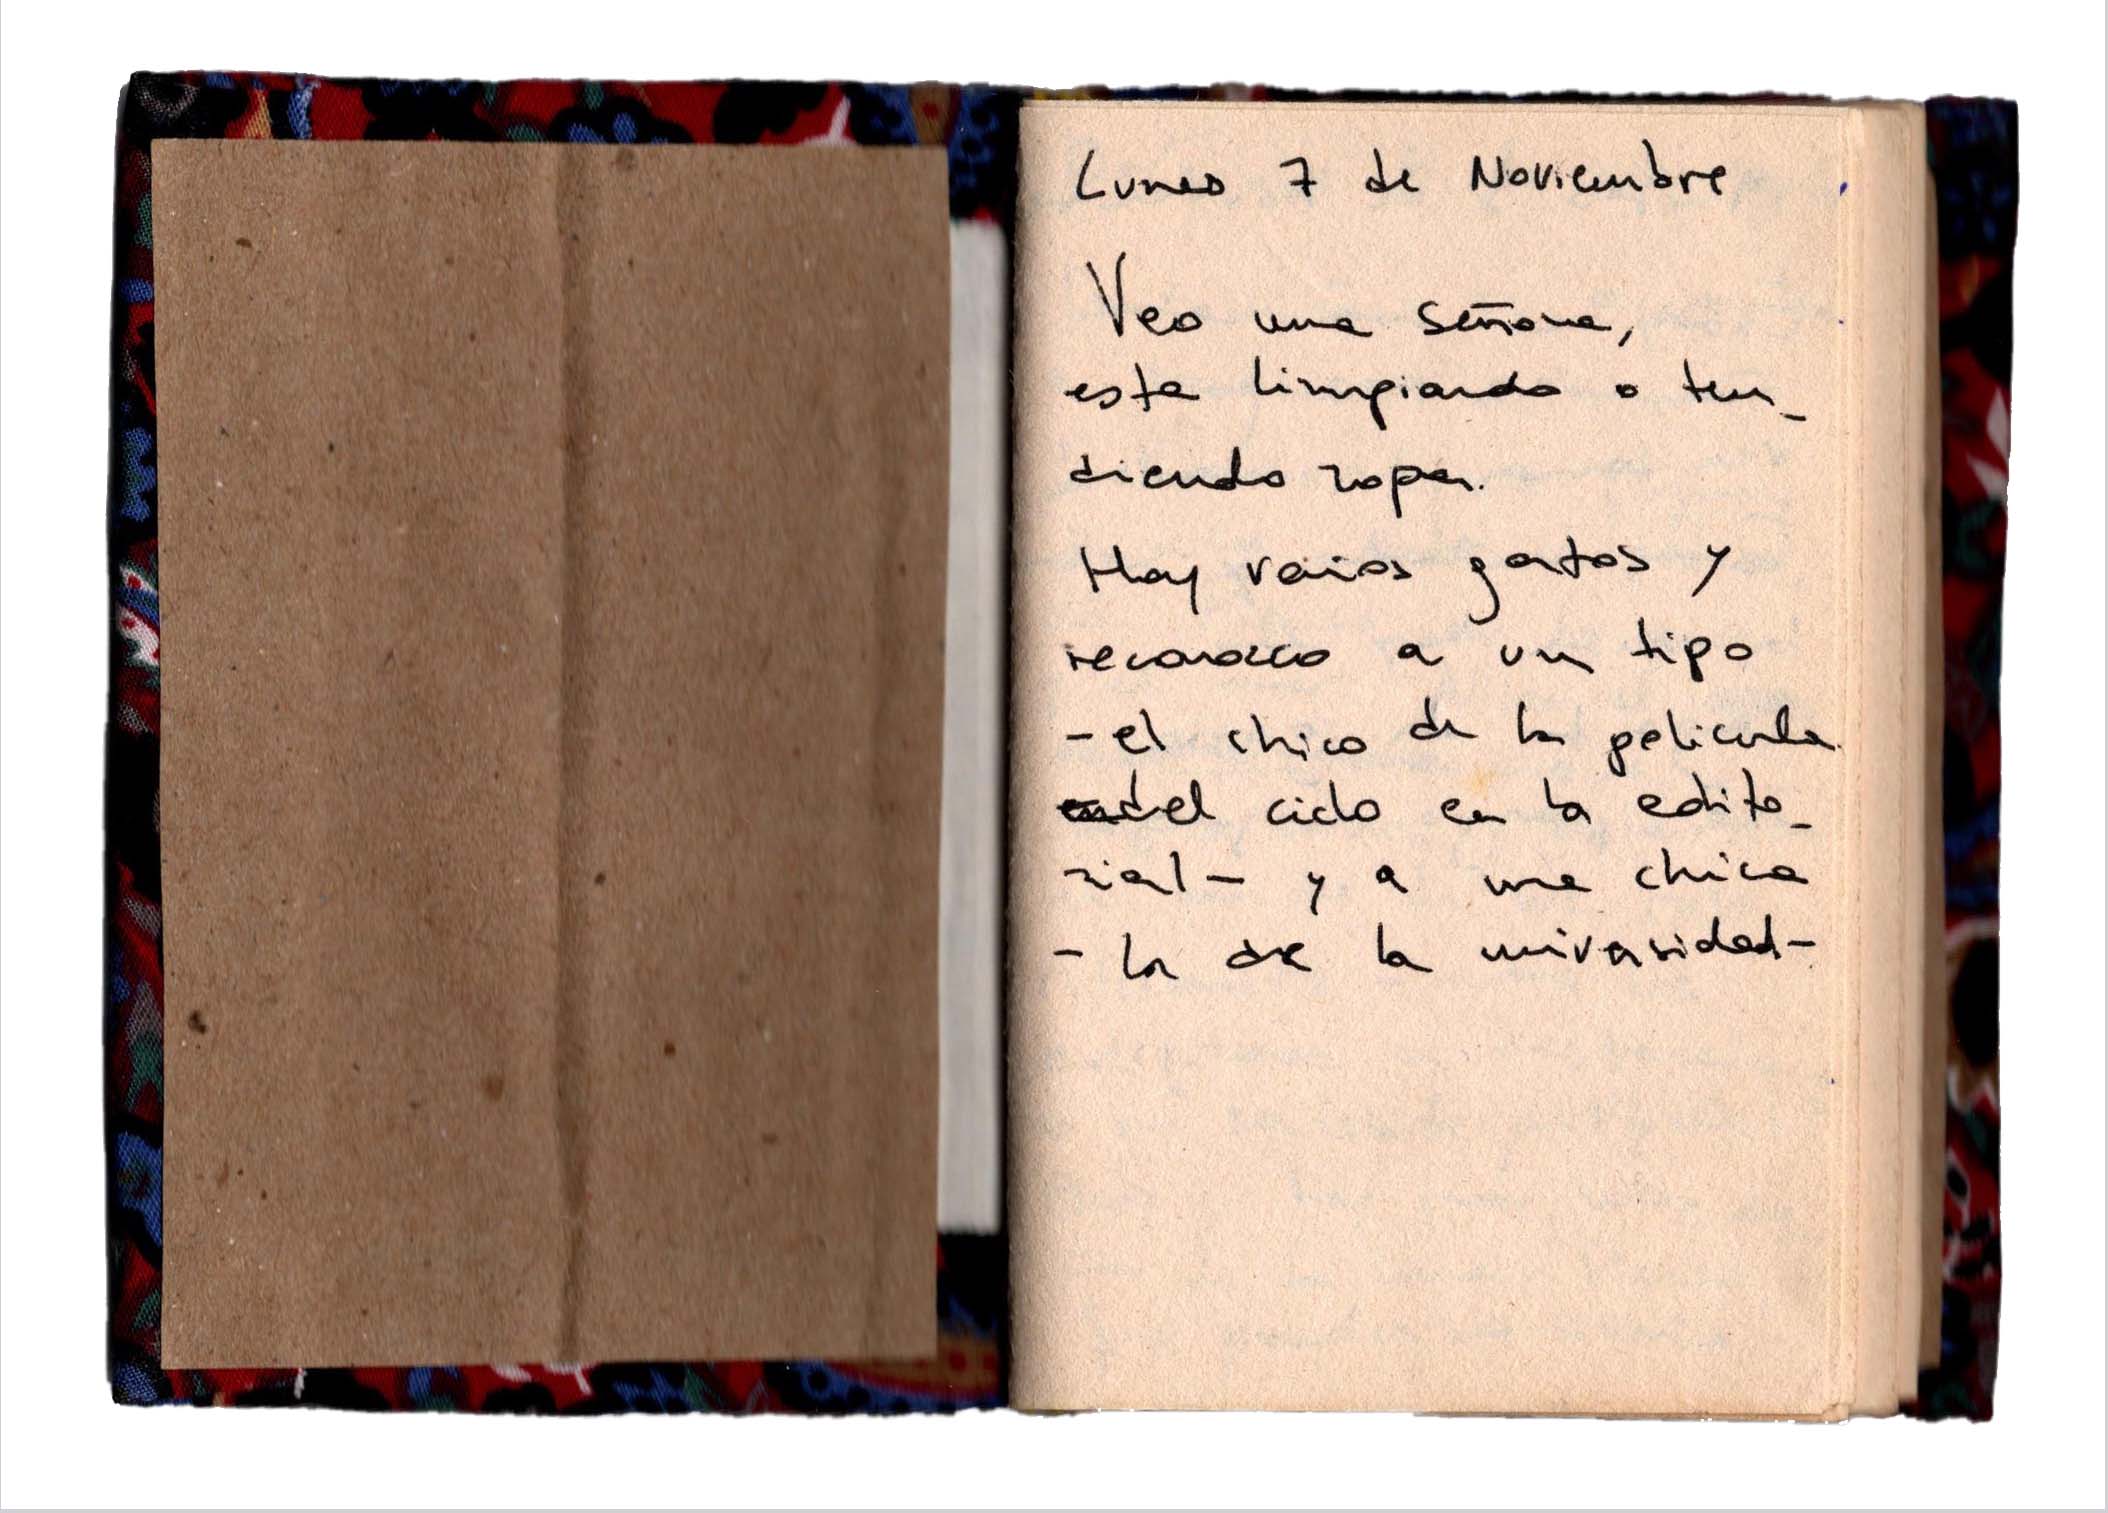 Lunes 7 de Noviembre
Veo una señora,
esta limpiando o ten_
diendo ropa.
Hay varios gatos y
reconozco a un tipo
- el chico de la pelicula
del ciclo en la edito_
rial - y a una chica
- la de la universidad -